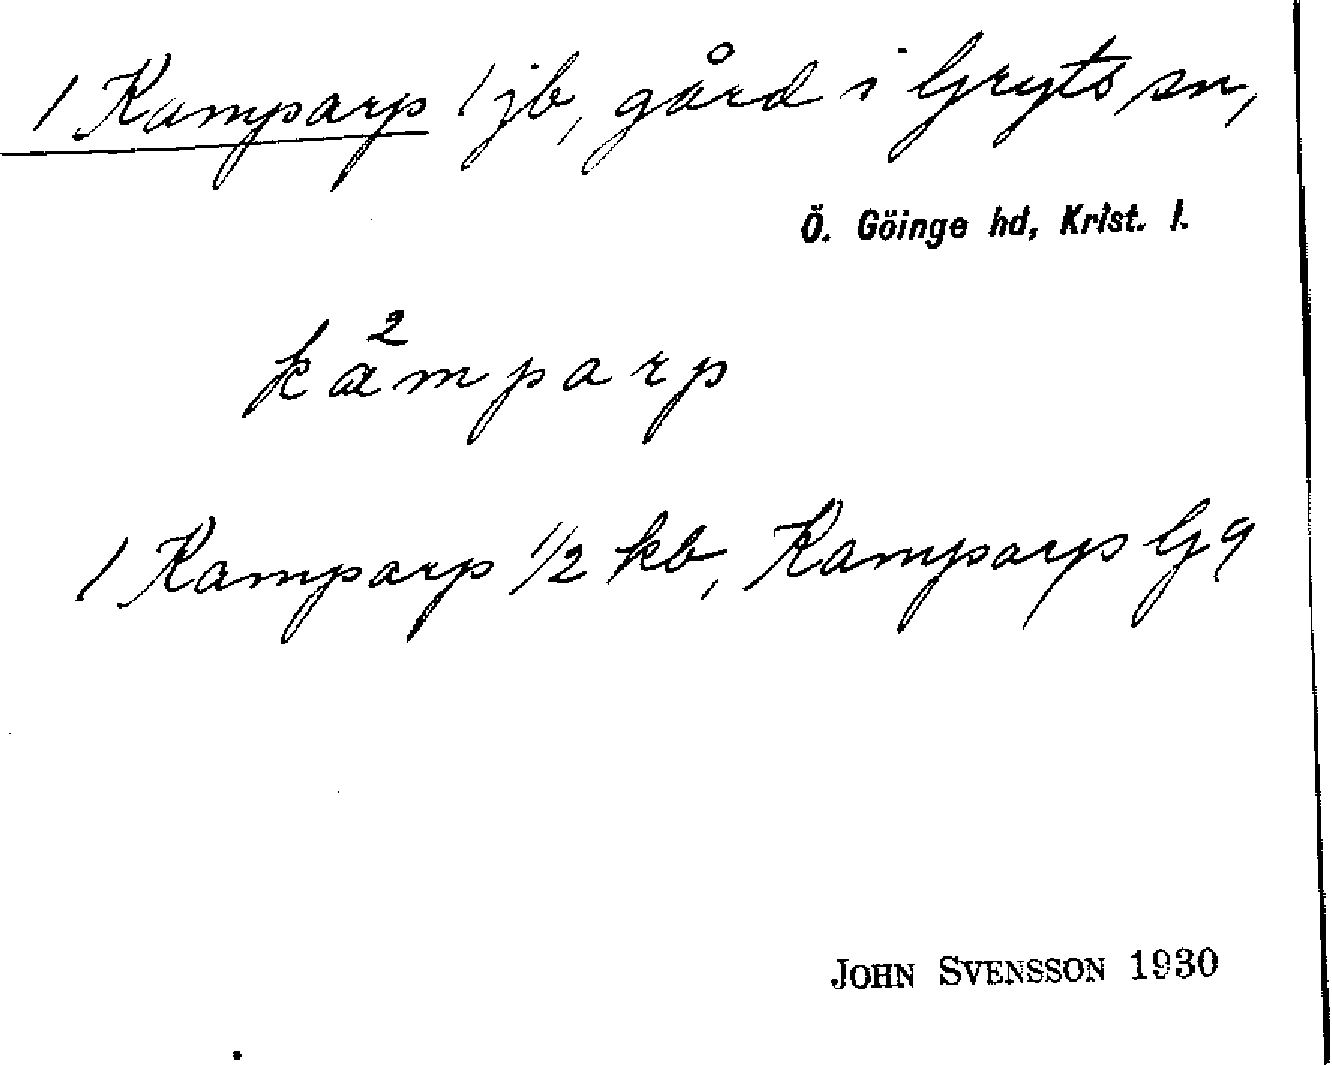 1 Kamparp 1 jb, gård i Gryts sn,
Ö. Göinge hd, Krist. l.
kä²mparp
1 Kamparp 1/2 kb, Kamparp G 9
JOHN SVENSSON 1930